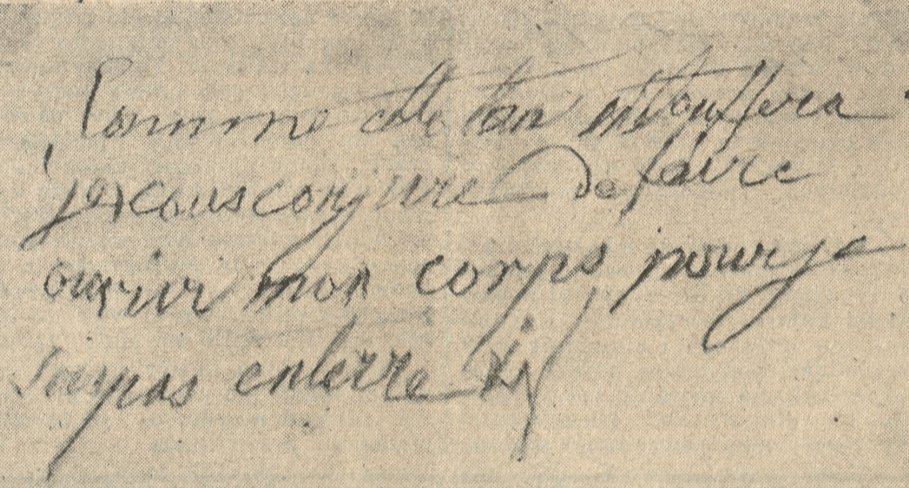 Comme cette m'étouffera
je vous conjure de faire
ouvrir mon corps pour je
soi pas enterré vif